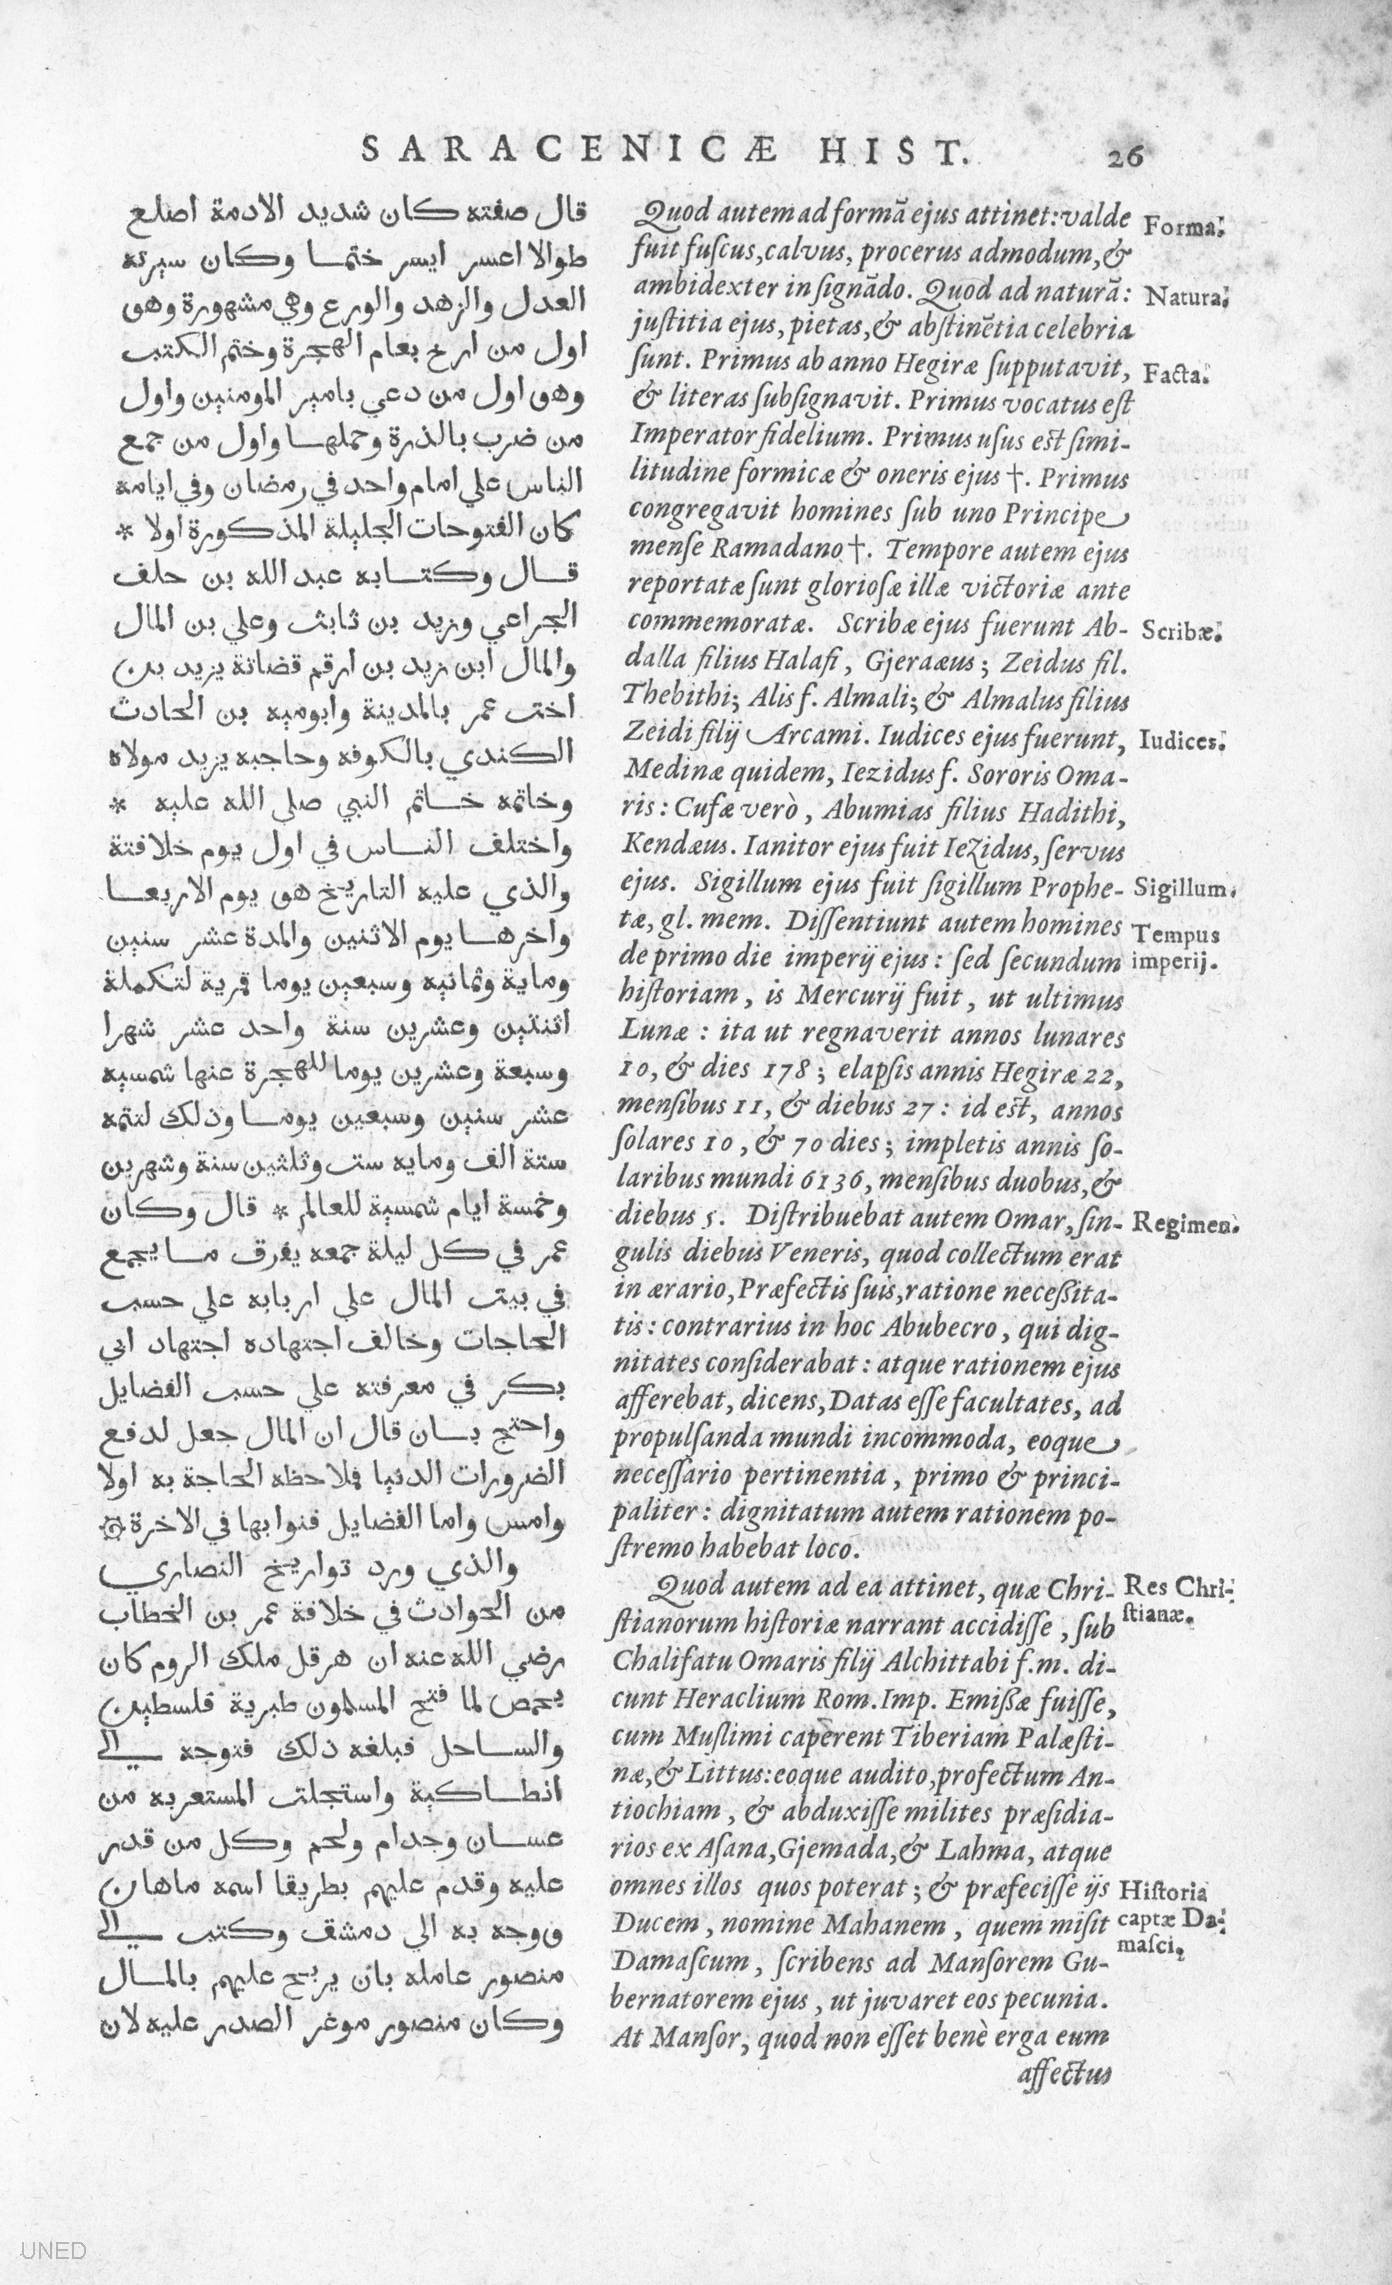 SARACENICÆ HIST. 26
قال صفته كان شديد الادمة اصلع
طوالا اعسر ايسر ختما وكان سيرته
العدل والزهد والورع وهي مشهورة وهو
اول من ارخ بعام الهجرة وختم الكتب
وهو اول من دعي بامير المومنين واول
من ضرب بالذرة وحملها واول من جمع
الناس علي امام واحد في رمضان وفي ايامه
كان الفتوحات الجليلة المذكورة اولا *
قال وكتابه عبد الله بن حلف
الجراعي وزيد بن ثابث وعلي بن المال
والمال ابن زيد بن ارقم قضاتة يزيد بن
اخت عمر بالمدينة وابوميه بن الحادث
الكندي بالكوفه وحاجبه يزيد مولاه
وخاتمه خاتم النبي صلي الله عليه *
واختلف الناس في اول يوم خلافتة
والذي عليه التاريخ هو يوم الاربعا
واخرها يوم الاثنين والمدة عشر سنين
وماية وثمانيه وسبعين يوما قمرية لتكملة
اثنتين وعشرين سنة واحد عشر شهرا
وسبعة وعشرين يوما للهجرة عنها شمسيه
عشر سنين وسبعين يوما وذلك لتتمه
ستة الف ومايه ست وثلثين سنة وشهرين
وخمسة ايام شمسية للعالم * قال وكان
عمر في كل ليلة جمعه يفرق ما يجمع
في بيت المال علي اربابه علي حسب
الحاجات وخالف اجتهاده اجتهاد ابي
بكر في معرفته علي حسب الفضايل
واحتج بان قال ان المال جعل لدفع
الضرورات الدنيا فلاحظه الحاجة به اولا
وامس واما الفضايل فنوابها في الاخرة
والذي ورد تواريخ النصاري
من الحوادث في خلافة عمر بن الخطاب
رضي الله عنه ان هرقل ملك الروم كان
بحمص لما فتح المسلمون طبرية فلسطين
والساحل فبلغه ذلك فتوجه الي
انطاكية واستجلت المستعربه من
عسان وجدام ولحم وكل من قدر
عليه وقدم عليهم بطريقا اسمه ماهان
ووجه به الي دمشق وكتب الي
منصور عامله بان يريح عليهم بالمال
وكان منصور موغر الصدر عليه لان
Quod autem ad formã ejus attinet: valde
fuit fuscus, calvus, procerus admodum, &
ambidexter in signãdo. Quod ad naturã:
justitia ejus, pietas, & abstinẽtia celebria
sunt. Primus ab anno Hegiræ supputavit,
& literas subsignavit. Primus vocatus est
Imperator fidelium. Primus usus est simi-
litudine formicæ & oneris ejus †. Primus
congregavit homines sub uno Principe
mense Ramadano †. Tempore autem ejus
reportatæ sunt gloriosæ illæ victoriæ ante
commemoratæ. Scribæ ejus fuerunt Ab-
dalla filius Halafi, Gjeraæus; Zeidus fil.
Thebithi; Alis f. Almali; & Almalus filius
Zeidi filij Arcami. Iudices ejus fuerunt,
Medinæ quidem, Iezidus f. Sororis Oma-
ris: Cufæ verò, Abumias filius Hadithi,
Kendæus. Ianitor ejus fuit Iezidus, servus
ejus. Sigillum ejus fuit sigillum Prophe-
tæ, gl. mem. Dissentiunt autem homines
de primo die imperij ejus: sed secundum
historiam, is Mercurij fuit, ut ultimus
Lunæ: ita ut regnaverit annos lunares
10, & dies 178; elapsis annis Hegiræ 22,
mensibus 11, & diebus 27: id est, annos
solares 10, & 70 dies; impletis annis so-
laribus mundi 6136, mensibus duobus, &
diebus 5. Distribuebat autem Omar, sin-
gulis diebus Veneris, quod collectum erat
in ærario, Præfectis suis, ratione necessita-
tis: contrarius in hoc Abubecro, qui dig-
nitates considerabat: atque rationem ejus
afferebat, dicens, Datas esse facultates, ad
propulsanda mundi incommoda, eoque
necessario pertinentia, primo & princi-
paliter: dignitatum autem rationem po-
stremo habebat loco.
Quod autem ad ea attinet, quæ Chri-
stianorum historiæ narrant accidisse, sub
Chalifatu Omaris filij Alchittabi f.m. di-
cunt Heraclium Rom. Imp. Emissæ fuisse,
cum Muslimi caperent Tiberiam Palæsti-
næ, & Littus: eoque audito, profectum An-
tiochiam, & abduxisse milites præsidia-
rios ex Asana, Gjemada, & Lahma, atque
omnes illos quos poterat; & præfecisse ijs
Ducem, nomine Mahanem, quem misit
Damascum, scribens ad Mansorem Gu-
bernatorem ejus, ut juvaret eos pecunia.
At Mansor, quod non esset benè erga eum
affectus
Forma.
Natura.
Facta.
Scribæ.
Iudices.
Sigillum.
Tempus
imperij.
Regimen.
Res Chri-
stianæ.
Historia
captæ Da-
masci.
UNED